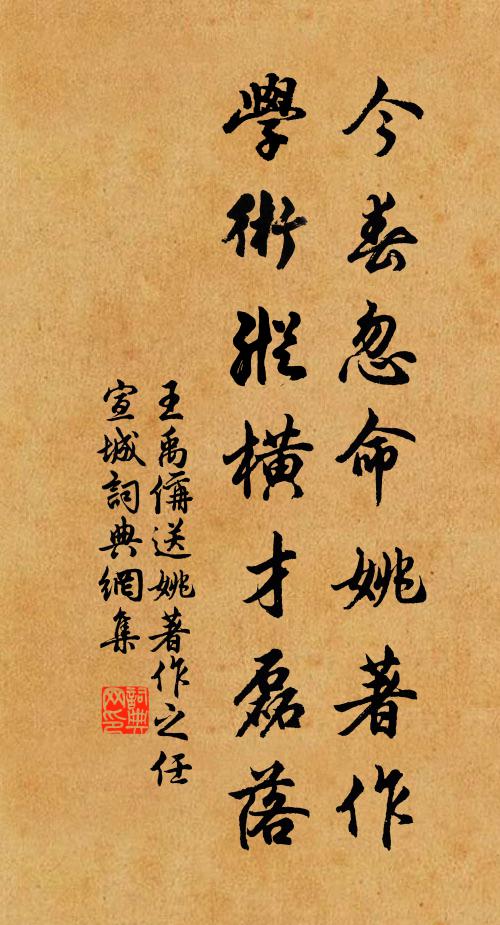 今春忽命姚著作
學術縱橫才磊落
王禹偁送姚著作之任
宣城詞典網集
詞典网印